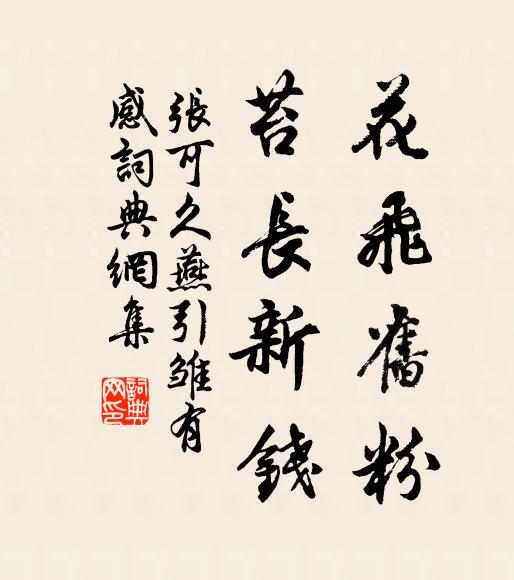 花飛舊粉
苔長新錢
張可久燕引雏有
感詞典網集
詞典
网印